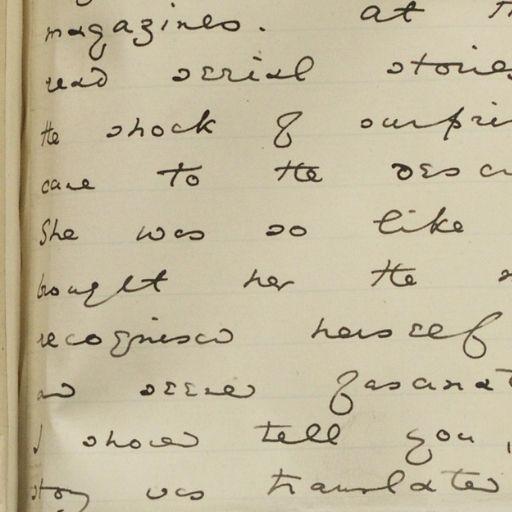 magazines. At
read serial stories
the shock of surpri
came to the descr
She was so like
bought her the
recognised herself
and seemed fascinat
I should tell you,
story was translated